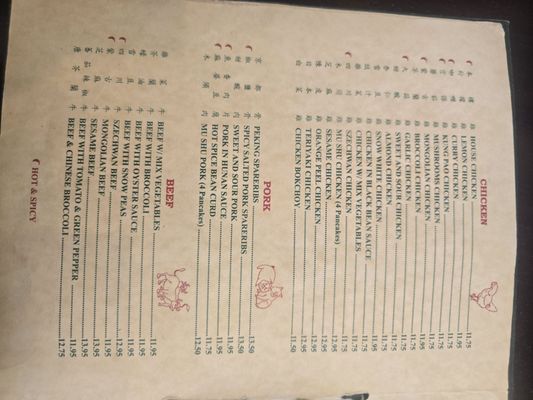 CHICKEN
HOUSE CHICKEN 11.75
檸 雞 LEMON CHICKEN 11.95
咖喱雞 CURRY CHICKEN 11.75
宮保雞 KUNG PAO CHICKEN 11.75
蘑菇雞 MUSHROOMS CHICKEN 11.75
蒙古雞 MONGOLIAN CHICKEN 11.95
芥蘭雞 BROCCOLI CHICKEN 11.75
GARLIC CHICKEN 11.75
甜酸雞 SWEET AND SOUR CHICKEN 11.75
杏仁雞 ALMOND CHICKEN 11.75
雪白雞 SNOW WHITE CHICKEN 11.95
豉汁雞 CHICKEN IN BLACK BEAN SAUCE 11.75
雜菜雞 CHICKEN W/ MIX VEGETABLES 11.75
四川雞 SZECHWAN CHICKEN 11.75
木須雞 MU SHU CHICKEN (4 Pancakes) 11.75
芝麻雞 SESAME CHICKEN 12.95
陳皮雞 ORANGE PEEL CHICKEN 12.95
日 雞 TERIYAKI CHICKEN 12.95
白菜雞 CHICKEN BOKCHOY 11.50
PORK
京都骨 PEKING SPARERIBS 13.50
椒鹽骨 SPICY SALTED PORK SPARERIBS 13.50
甜酸肉 SWEET AND SOUR PORK 11.95
魚香肉 PORK IN HUNAN SAUCE 11.95
麻婆豆腐 HOT SPICE BEAN CURD 11.75
木須肉 MU SHU PORK (4 Pancakes) 12.50
BEEF
雜菜牛 BEEF W/ MIX VEGETABLES 11.95
芥蘭牛 BEEF WITH BROCCOLI 11.95
蠔油牛 BEEF WITH OYSTER SAUCE 11.95
雪豆牛 BEEF WITH SNOW PEAS 11.95
四川牛 SZECHWAN BEEF 12.95
蒙古牛 MONGOLIAN BEEF 11.95
芝麻牛 SESAME BEEF 13.95
蕃茄辣椒牛 BEEF WITH TOMATO & GREEN PEPPER 11.95
唐芥蘭牛 BEEF & CHINESE BROCCOLI 12.75
HOT & SPICY